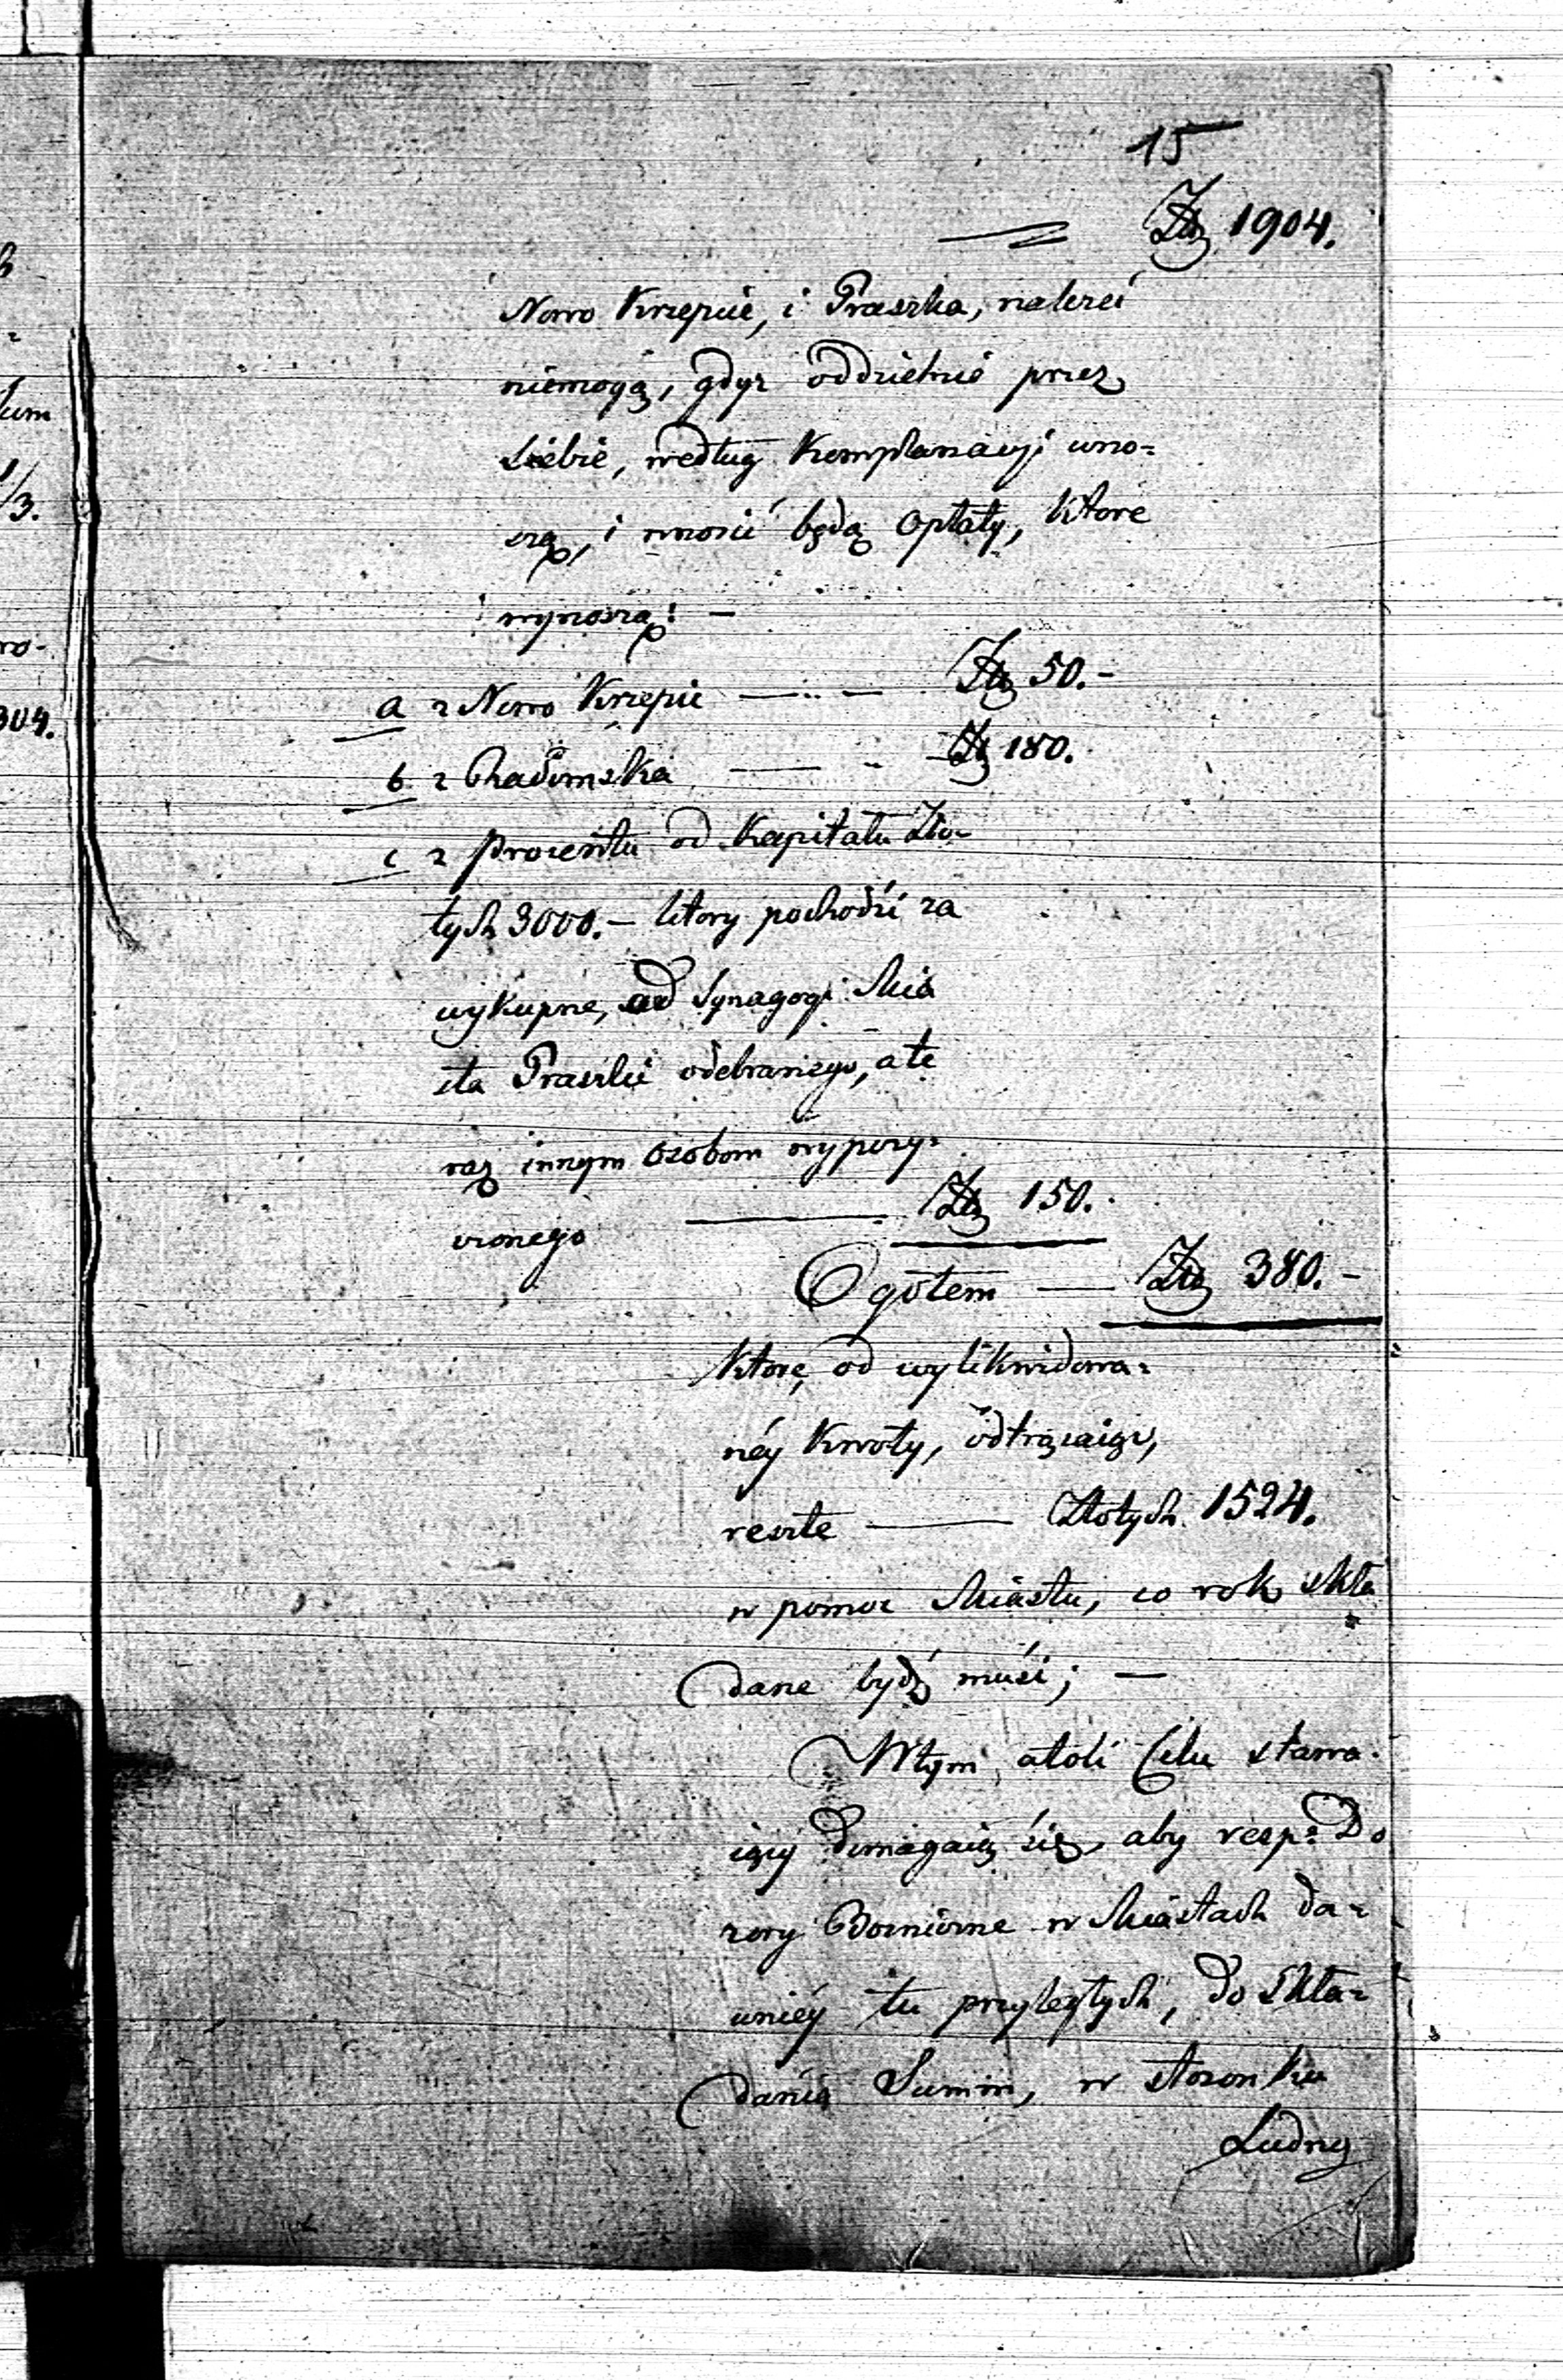 15
Złp 1904.
Nowo Krzepie, i Praszka, należeć
niemogą, gdyż oddzielnie przez
siebie, według Komplanacyi wno=
szą, i wnosić będą Opłaty, które
wynoszą: —
a z Nowo Krzepic — Złp 50.-
b z Radomska — Złp 180.
c z Procentu od Kapitału Zło=
tych 3000.— który pochodzi za
wykupne, od Synagogi Mia
sta Praszki odebranego, a te
raz innym Osobom wypoży=
czonego — Złp 150.
Ogółem — Złp 380.-
które, od wylikwidowa=
néy Kwoty, odtrąciaiąc,
resztę — Złotych 1524.
w pomoc Miastu, co rok skła
dane bydź musi; —
W tym atoli Celu stawa=
iący domagaią się, aby resp: Do
zory Bożnicze w Miastach da=
wniéy tu przyległych, do Skła=
dania Summ, w stosunku
Ludno
lum
1/3.
304.